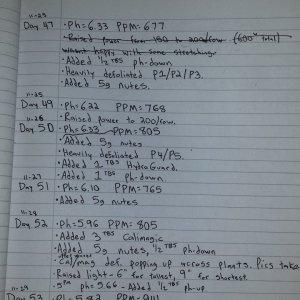 11-25
Day 47 • Ph=6.33 PPM=677
• Raised power from 150 to 200/row. (600w total)
wasnt happy with some stretching.
• Added 1/2 TBS ph-down
• Heavily defoliated P1/P2/P3.
• Added 5g nutes
11-25
Day 49 • Ph=6.22 PPM=768
11-26 • Raised power to 200/row.
Day 50 • Ph=6.33 PPM=805
• Added 5g nutes
• Heavily defoliated P4/P5.
• Added 1 TBS HydraGuard.
11-27 • Added 1 TBS Ph-down.
Day 51 • Ph=6.10 PPM=765
• Added 5g nutes
11-28
Day 52 • Ph=5.96 PPM=805
• Added 3 TBS Calimagic
• Added 5g nutes, 1/2 TBS ph-down
Cal/mag def. popping up across plants. Pics take
Raised light - 6" for tallest, 9" for shortest.
11-29 • 5PM ph=5.66 - Added 1/2 TBS ph-up
Day 53 • Ph=5.82 PPM=911